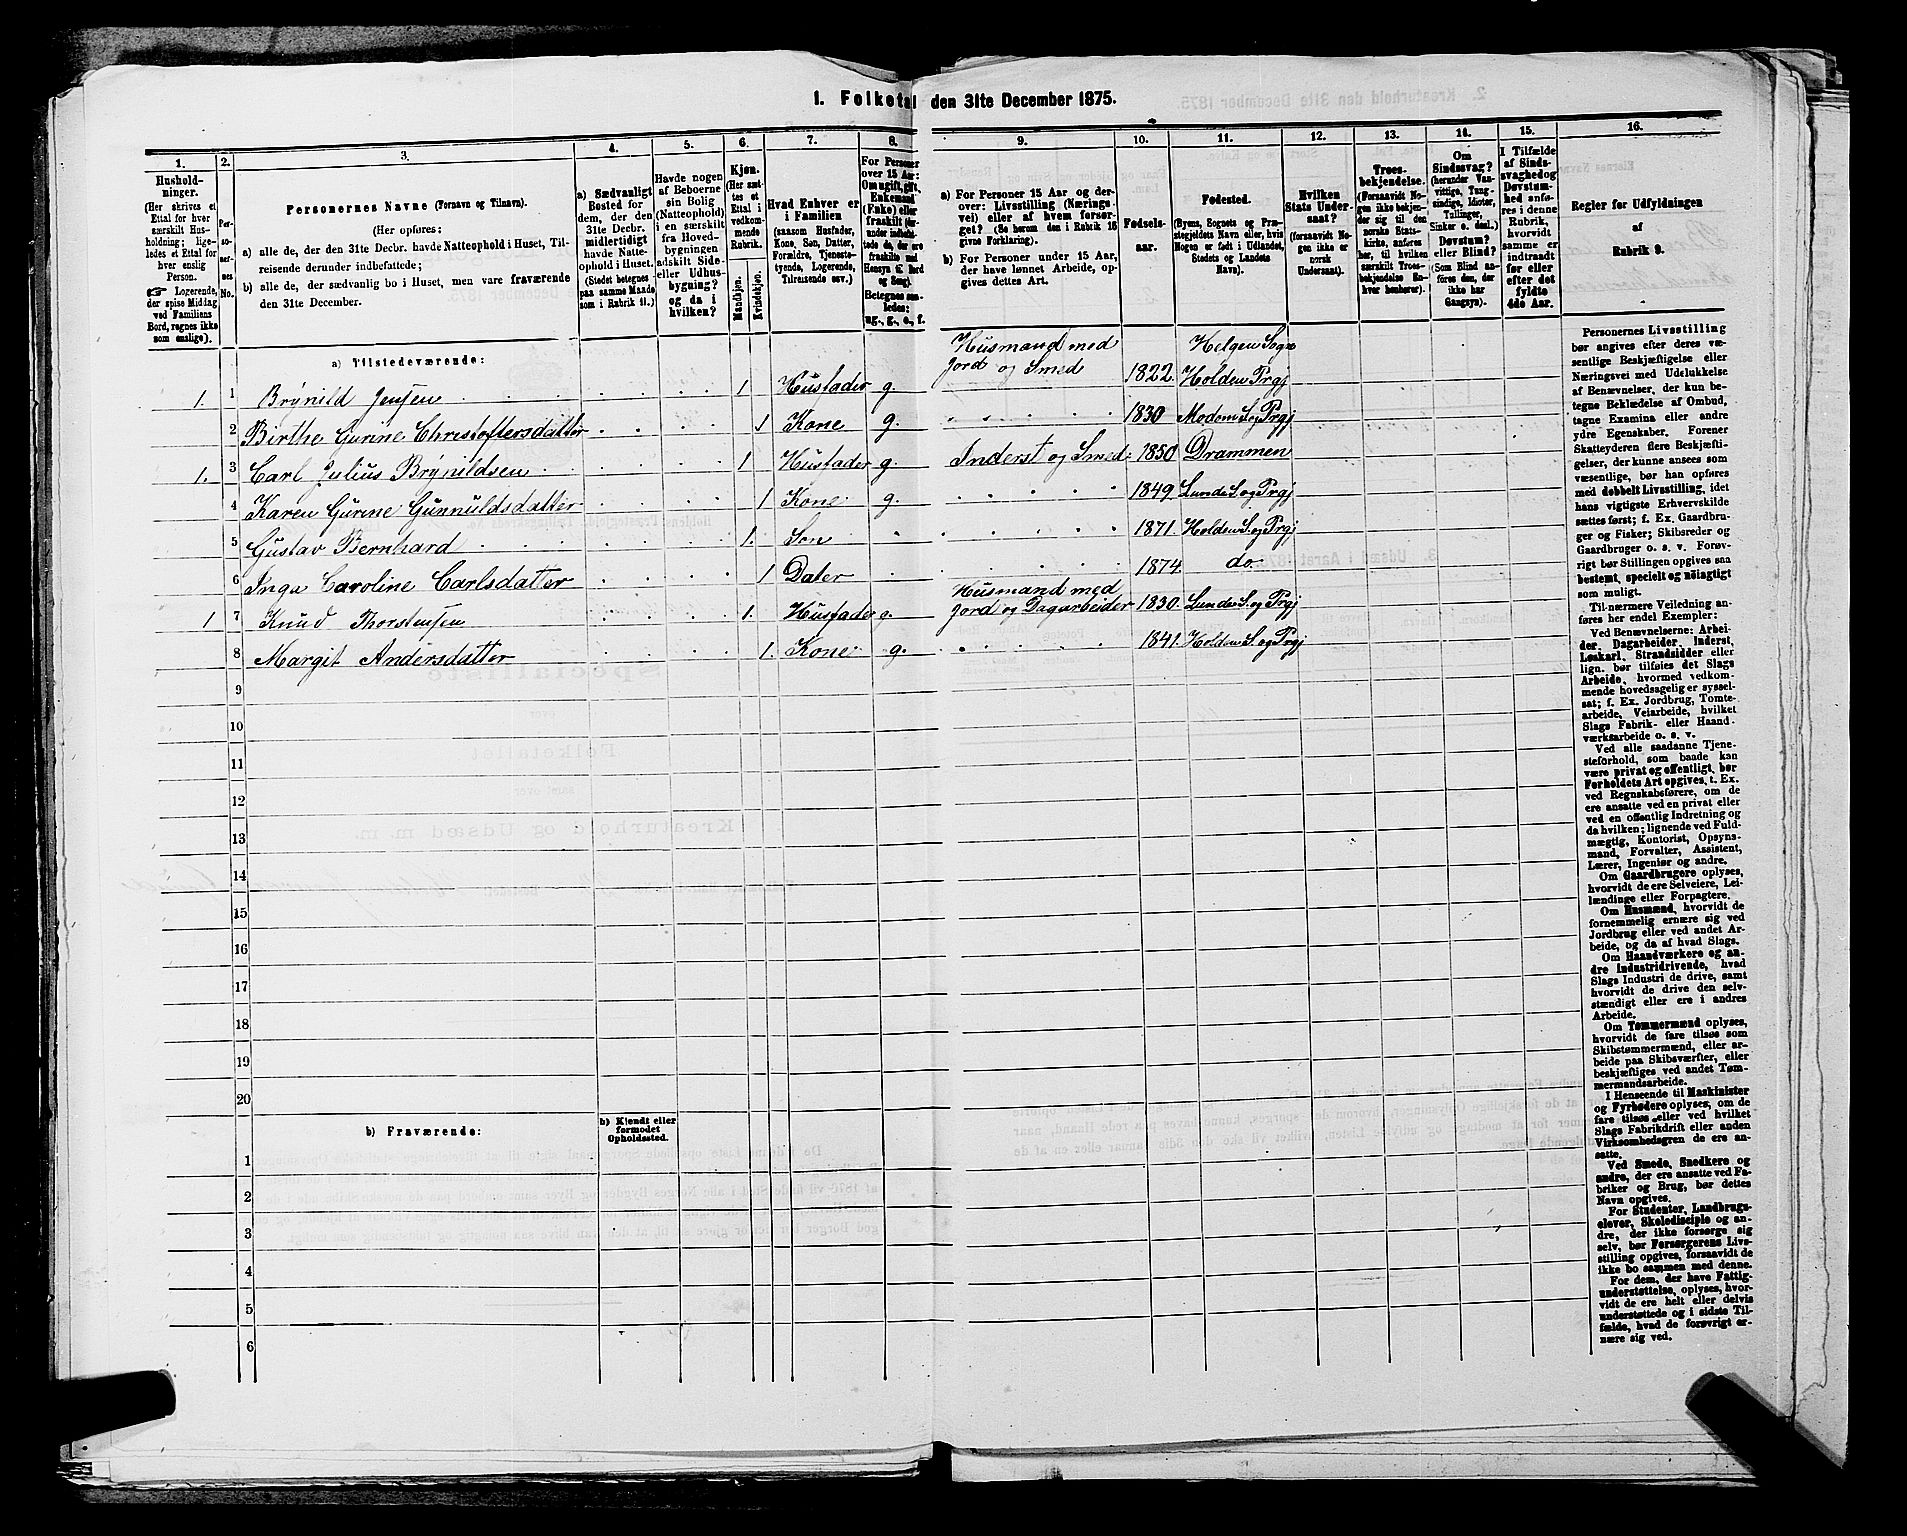 1. Folketal den 31te December 1875.
1. 2. 3. 4. 5. 6. 7. 8. 9. 10. 11. 12. 13. 14. 15. 16.
Hushold-
ninger.
(Her skrives et
Ettal for hver
særskilt Hus-
holdning; lige-
ledes et Ettal for
hver enslig
Person.
☞ Logerende,
der spise Middag
ved Familiens
Bord, regnes ikke
som enslige).
Per-
so-
ner-
nes
No.
Personernes Navne (Fornavn og Tilnavn).
(Her opføres:
a) alle de, der den 31te Decbr. havde Natteophold i Huset, Til-
reisende derunder indbefattede;
b) alle de, der sædvanlig bo i Huset, men vare fraværende
den 31te December.
a) Sædvanligt
Bosted for
dem, der den
31te Decbr.
midlertidigt
havde Natte-
ophold i Huset.
(Stedet betegnes
paa samme Maade
som i Rubrik 11.)
Havde nogen
af Beboerne
sin Bolig
(Natteophold)
i en særskilt
fra Hoved-
bygningen
adskilt Side-
eller Udhus-
bygning?
og da i
hvilken?
Kjøn.
(Her sæt-
tes et
Ettal i
vedkom-
mende
Rubrik.
Mandkjøn.
Kvindekjøn.
Hvad Enhver er
i Familien
(saasom Husfader,
Kone, Søn, Datter,
Forældre, Tjeneste-
tyende, Logerende,
Tilreisende osv.)
For Personer
over 15 Aar:
Om ugift, gift,
Enkemand
(Enke) eller
fraskilt
Betegnes saa-
ledes:
ug., g., e., f.
a) For Personer 15 Aar og der-
over: Livsstilling (Nærings-
vei) eller af hvem forsør-
get? (Se herom den i Rubrik 16
givne Forklaring).
b) For Personer under 15 Aar,
der have lønnet Arbeide, op-
gives dettes Art.
Fødsels-
aar.
Fødested.
(Byens, Sognets og Præ-
stegjeldets Navn eller, hvis
Nogen er født i Udlandet,
Stedets og Landets
Navn).
Hvilken
Stats Under-
saat?
(forsaavidt No-
gen ikke er
norsk
Undersaat).
Troes-
bekjendelse.
(Forsaavidt No-
gen ikke bekjen-
der sig til den
norske Stats-
kirke, anføres
her, til hvilken
særskilt Troes-
bekjendelse En-
hver henhører).
Om
Sindssvag?
(herunder Van-
vittige, Tung-
sindige, Idioter,
Tullinger,
Sinker o. desl.)
Døvstum?
eller Blind?
(Som Blind an-
føres den, der
ikke har
Gangsyn).
I Tilfælde
af Sinds-
svaghed og
Døvstum-
hed anfø-
res i denne
Rubrik,
hvorvidt
samme er
indtraadt
før eller
efter det
fyldte
4de Aar.
Regler for Udfyldningen
af
Rubrik 9.
a) Tilstedeværende:
1. 1 Brynild Jensen 1 Husfader g. Husmand med Jord og Smed 1822. Helgen Sogn Holden Prgj
2 Birthe Gurine Christoffersdatter 1 Kone g. 1830 Modem S. og Prgj
1. 3 Carl Julius Brynildsen 1 Husfader g. Inderst og Smed 1850 Drammen
4 Karen Gurine Gunnuldsdatter 1 Kone g. 1849 Lunde S. og Prgj
5 Gustav Bernhard 1. Søn 1871. Holden S. og Prgj
6 Inga Caroline Carlsdatter 1 Dater 1874 do.
1 7 Knud Thorstensen 1. Husfader g. Husmand med Jord og Dagarbeider 1830. Lunde S. og Prgj
8 Margit Andersdatter 1. Kone g. 1841. Holden S. og Prgj
9
10
11
12
13
14
15
16
17
18
19
20
b) Fraværende:
b) Kjendt eller
formodet
Opholdssted.
1
2
3
4
5
6
Personernes Livsstilling
bør angives efter deres væ-
sentlige Beskjæftigelse eller
Næringsvei med Udelukkelse
af Benævnelser, der kun be-
tegne Beklædelse af Ombud,
tagne Examina eller andre
ydre Egenskaber. Forener
Skatteyderen flere Beskjæfti-
gelser, der kunne ansees som
væsentlige, bør han opføres
med dobbelt Livsstilling, idet
hans vigtigste Erhvervskilde
sættes først; f. Ex. Gaardbru-
ger og Fisker; Skibsreder og
Gaardbruger o. s. v. Forøv-
rigt bør Stillingen opgives saa
bestemt, specielt og nøiagtigt
som muligt.
Til nærmere Veiledning an-
føres her endel Exempler:
Ved Benævnelserne: Arbei-
der, Dagarbeider, Inderst,
Løskarl, Strandsidder eller
lign. bør tilføies det Slags
Arbeide, hvormed vedkom-
mende hovedsagelig er syssel-
sat; f. Ex. Jordbrug, Tomte-
arbeide, Veiarbeide, hvilket
Slags Fabrik- eller Haand-
værksarbeide o. s. v.
Ved alle saadanne Tjene-
steforhold, som baade kan
være privat og offentligt, bør
Forholdets Art opgives, t. Ex.
ved Regnskabsførere, om de
ere ansatte ved en privat eller
ved en offentlig Indretning og
da hvilken; lignende ved Fuld-
mægtig, Kontorist, Opsyns-
mand, Forvalter, Assistent,
Lærer, Ingeniør og andre.
Om Gaardbrugere oplyses,
hvorvidt de ere Selveiere, Lei-
lændinge eller Forpagtere.
Om Husmænd, hvorvidt de
fornemmelig ernære sig ved
Jordbrug eller ved andet Ar-
beide, og da af hvad Slags.
Om Haandværkere og an-
dre Industridrivende, hvad
Slags Industri de drive, samt
hvorvidt de drive den selv-
stændigt eller ere i andres
Arbeide.
Om Tømmermænd oplyses,
hvorvidt de fare tilsøs som
Skibstømmermænd, eller ar-
beide paa Skibsværfter, eller
beskjæftiges ved andet Tøm-
mermandsarbeide.
I Henseende til Maskinister
og Fyrbødere oplyses, om de
fare tilsøs eller ved hvilket
Slags Fabrikdrift eller anden
Virksomhedsgren de ere an-
satte.
Ved Smede, Snedkere og
andre, der ere ansatte ved Fa-
briker og Brug, bør dettes
Navn opgives.
For Studenter, Landbrugs-
elever, Skoledisciple og an-
dre, der ikke forsørge sig
selv, bør Forsørgerens Livs-
stilling opgives, forsaavidt de
ikke bo sammen med denne.
For dem, der have Fattig-
understøttelse, oplyses, hvor-
vidt de ere helt eller delvis
understøttede og i sidste Til-
fælde, hvad de forøvrigt er-
nære sig ved.